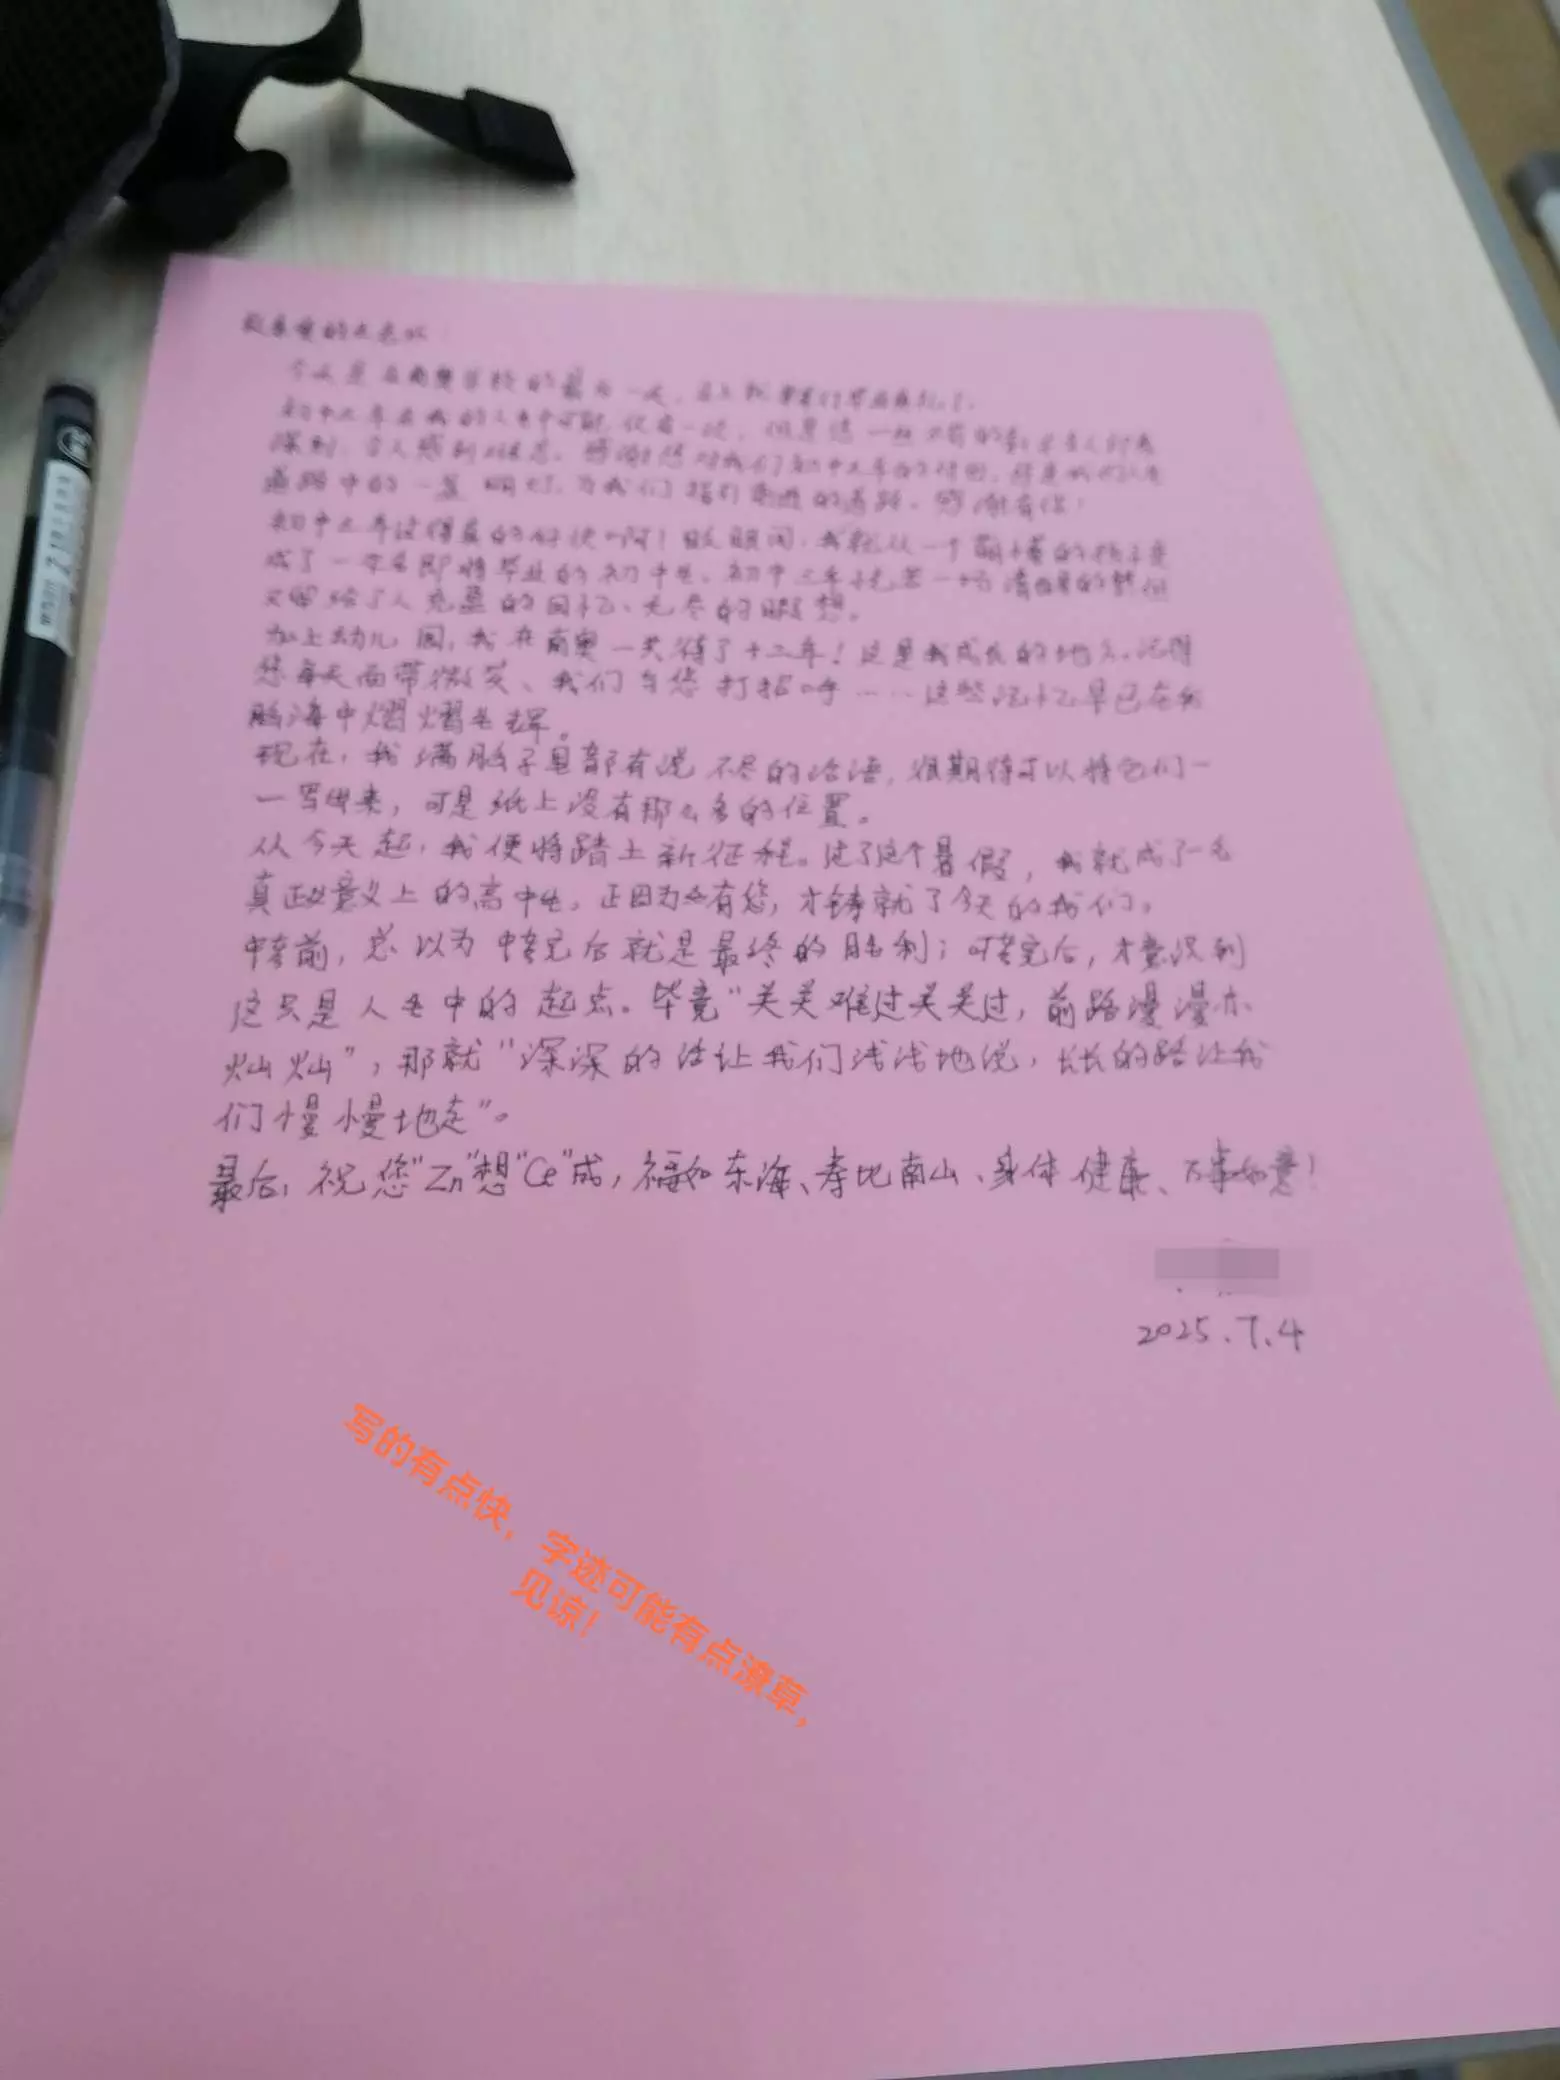 今天是在南奥学校的最后一天,
初中三年在我的人生中可能仅有一次,
深刻,令人感到
道路中的一盏明灯,为我们指引前进的道路。感谢有您!
初中三年过得真的好快啊!眨眼间,我就从一个懵懂的孩子变
成了一名即将毕业的初中生。初中三年
又留给了人充盈的回忆、无尽的遐想。
加上幼儿园,我在南奥一共待了十二年!这是我成长的地方。记得
您每天面带微笑、我们与您打招呼……这些记忆早已在我
脑海中熠熠生辉。
现在,我满脑子里都有说不尽的话语,很期待可以将它们一
一写出来,可是纸上没有那么多的位置。
从今天起,我便将踏上新征程。过了这个暑假,我就成了一名
真正意义上的高中生。正因为有您,才铸就了今天的我们。
中考前,总以为中考完后就是最终的胜利;可考完后,才意识到
这只是人生中的起点。毕竟“关关难过关关过,前路漫漫亦
灿灿”,那就“深深的话让我们浅浅地说,长长的路让我
们慢慢地走”。
最后,祝您“Zn”想“Ce”成,福如东海、寿比南山、身体健康、万事如意!
2025.7.4
写的有点快,字迹可能有点潦草,
见谅!